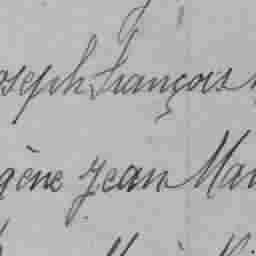 oseph François
gène Jean Mar